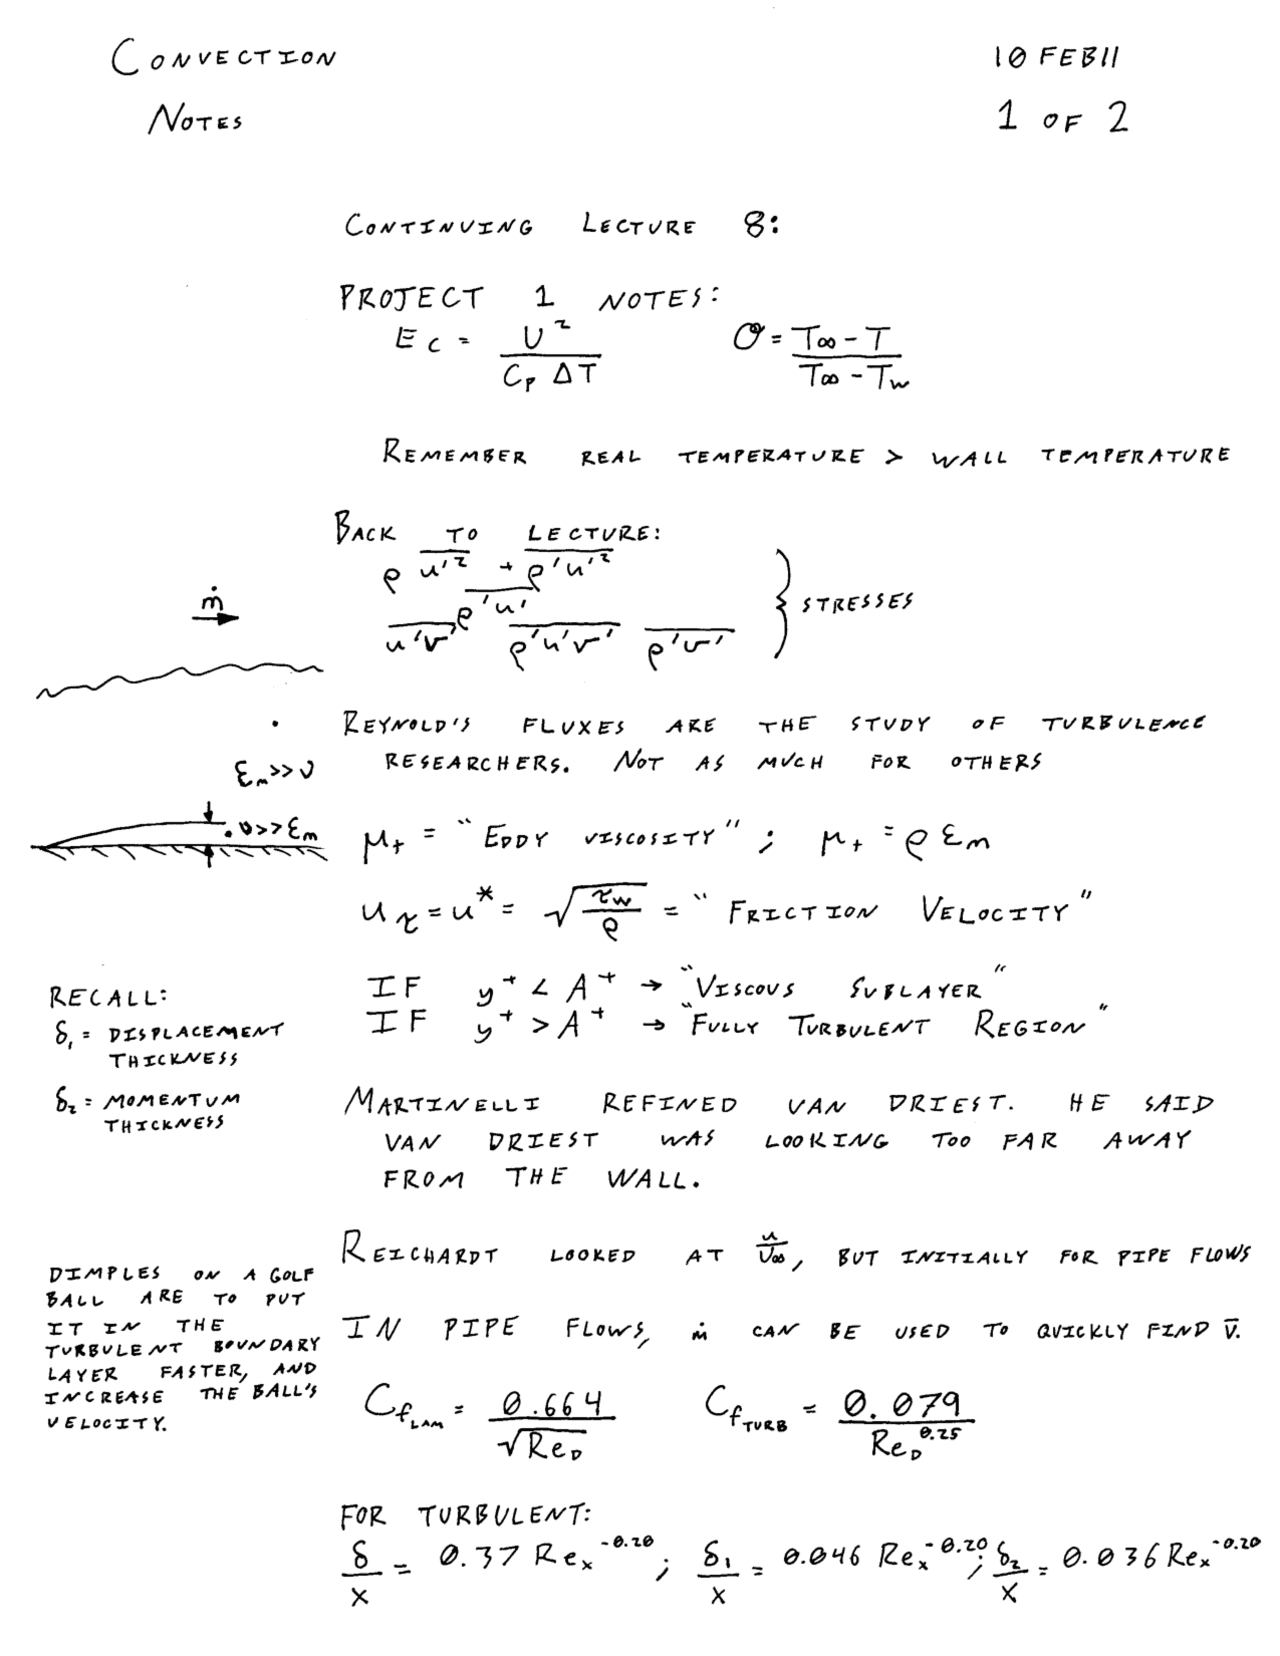 CONVECTION
NOTES
10 FEB 11
1 OF 2
CONTINUING LECTURE 8:
PROJECT 1 NOTES:
Ec = U² / (Cp ΔT)    Θ = (T∞ - T) / (T∞ - Tw)
REMEMBER REAL TEMPERATURE > WALL TEMPERATURE
BACK TO LECTURE:
ρ \overline{u'²} + \overline{ρ'u'²}
\overline{ρ'u'}
\overline{u'v'} \overline{ρ'u'v'} \overline{ρ'v'}
} STRESSES
ṁ
εm >> ν
ν >> εm
REYNOLD'S FLUXES ARE THE STUDY OF TURBULENCE
RESEARCHERS. NOT AS MUCH FOR OTHERS
μt = "EDDY VISCOSITY" ; μt = ρ εm
uτ = u* = √(τw/ρ) = "FRICTION VELOCITY"
IF y⁺ < A⁺ → "VISCOUS SUBLAYER"
IF y⁺ > A⁺ → "FULLY TURBULENT REGION"
RECALL:
δ₁ = DISPLACEMENT
THICKNESS
δ₂ = MOMENTUM
THICKNESS
MARTINELLI REFINED VAN DRIEST. HE SAID
VAN DRIEST WAS LOOKING TOO FAR AWAY
FROM THE WALL.
REICHARDT LOOKED AT u/U∞, BUT INITIALLY FOR PIPE FLOWS
DIMPLES ON A GOLF
BALL ARE TO PUT
IT IN THE
TURBULENT BOUNDARY
LAYER FASTER, AND
INCREASE THE BALL'S
VELOCITY.
IN PIPE FLOWS, ṁ CAN BE USED TO QUICKLY FIND V̄.
Cf LAM = 0.664 / √ReD    Cf TURB = 0.079 / ReD^0.25
FOR TURBULENT:
δ/x = 0.37 Rex^-0.20 ; δ₁/x = 0.046 Rex^-0.20 ; δ₂/x = 0.036 Rex^-0.20